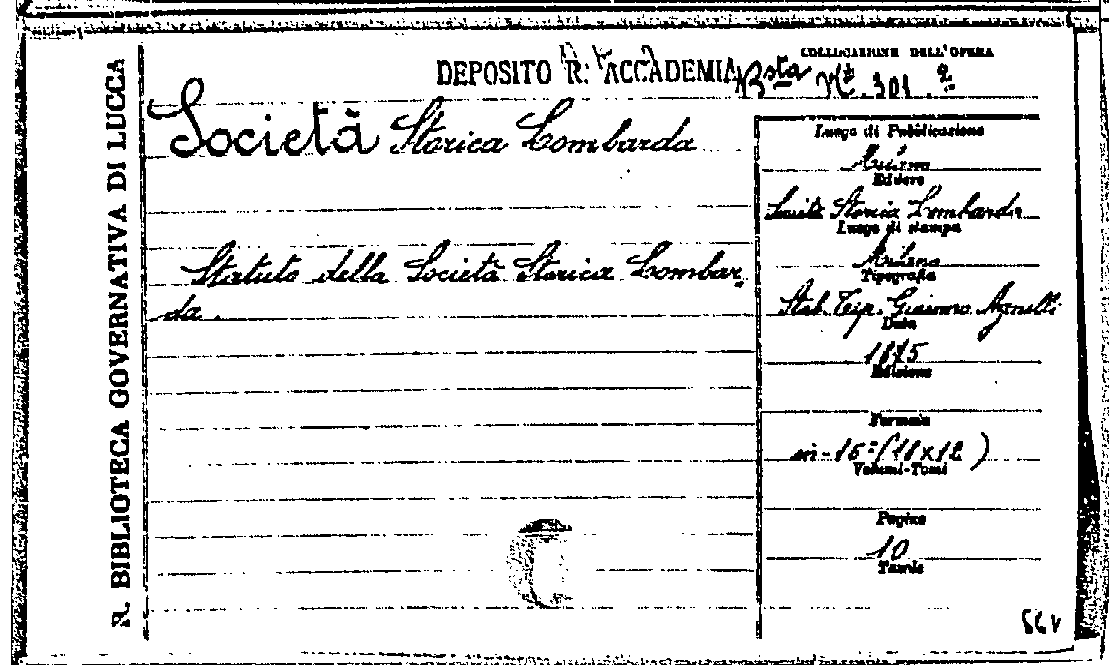 R. BIBLIOTECA GOVERNATIVA DI LUCCA
DEPOSITO R. ACCADEMIA
COLLOCAZIONE DELL'OPERA
Bsta N° 301.
Società Storica Lombarda
Statuto della Società Storica Lombar
da.
Luogo di Pubblicazione
Milano
Editore
Società Storica Lombarda
Luogo di stampa
Milano
Tipografia
Stab. Tip. Giacomo Agnelli
Data
1875
Edizione
Formato
in-16° (18x12)
Volumi-Tomi
Pagine
10
Tavole